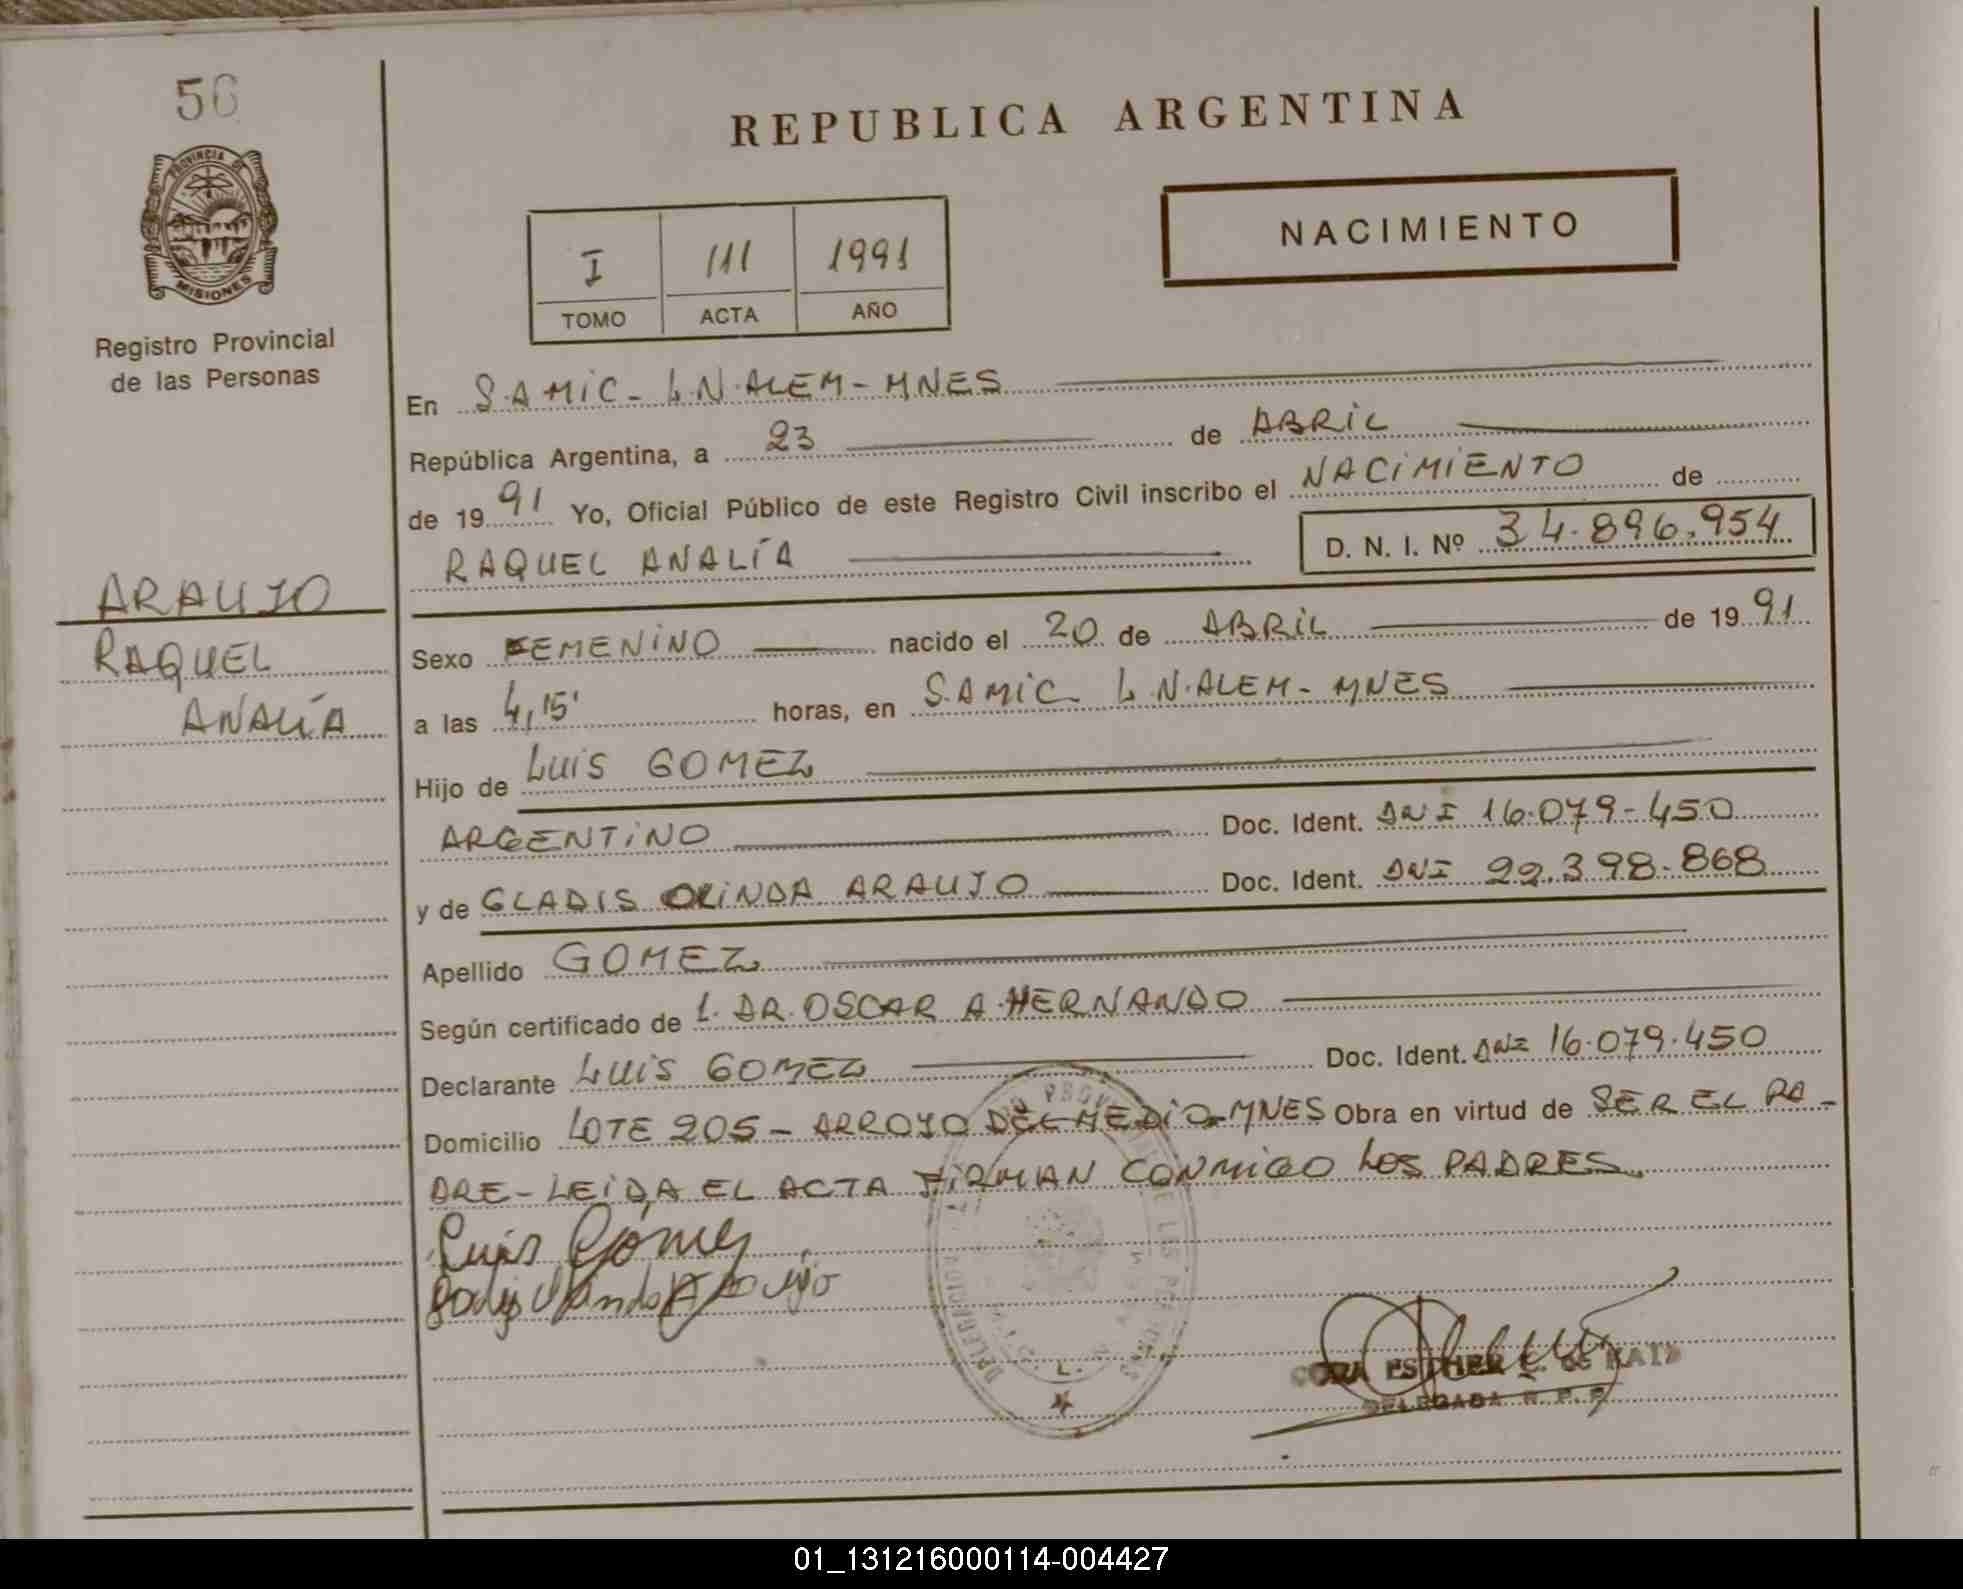 56
REPUBLICA ARGENTINA
NACIMIENTO
I 111 1991
TOMO ACTA AÑO
PROVINCIA DE
MISIONES
Registro Provincial
de las Personas
En S.A.MIC - L.N.ALEM - MNES
República Argentina, a 23 de ABRIL
de 1991 Yo, Oficial Público de este Registro Civil inscribo el NACIMIENTO de
RAQUEL ANALÍA D. N. I. Nº 34.896.954
ARAUJO
RAQUEL
ANALÍA
Sexo FEMENINO nacido el 20 de ABRIL de 1991
a las 4,15' horas, en S.A.MIC - L.N.ALEM - MNES
Hijo de LUIS GOMEZ
ARGENTINO Doc. Ident. DNI 16.079.450
y de GLADIS OLINDA ARAUJO Doc. Ident. DNI 22.398.868
Apellido GOMEZ
Según certificado de 1. DR. OSCAR A. HERNANDO
Declarante LUIS GOMEZ Doc. Ident. DNI 16.079.450
Domicilio LOTE 205 - ARROYO DEL MEDIO - MNES Obra en virtud de SER EL PA-
DRE - LEIDA EL ACTA FIRMAN CONMIGO LOS PADRES.
Luis Gómez
Araujo
CORA ESTHER
DELEGADA R. P. P.
01_131216000114-004427